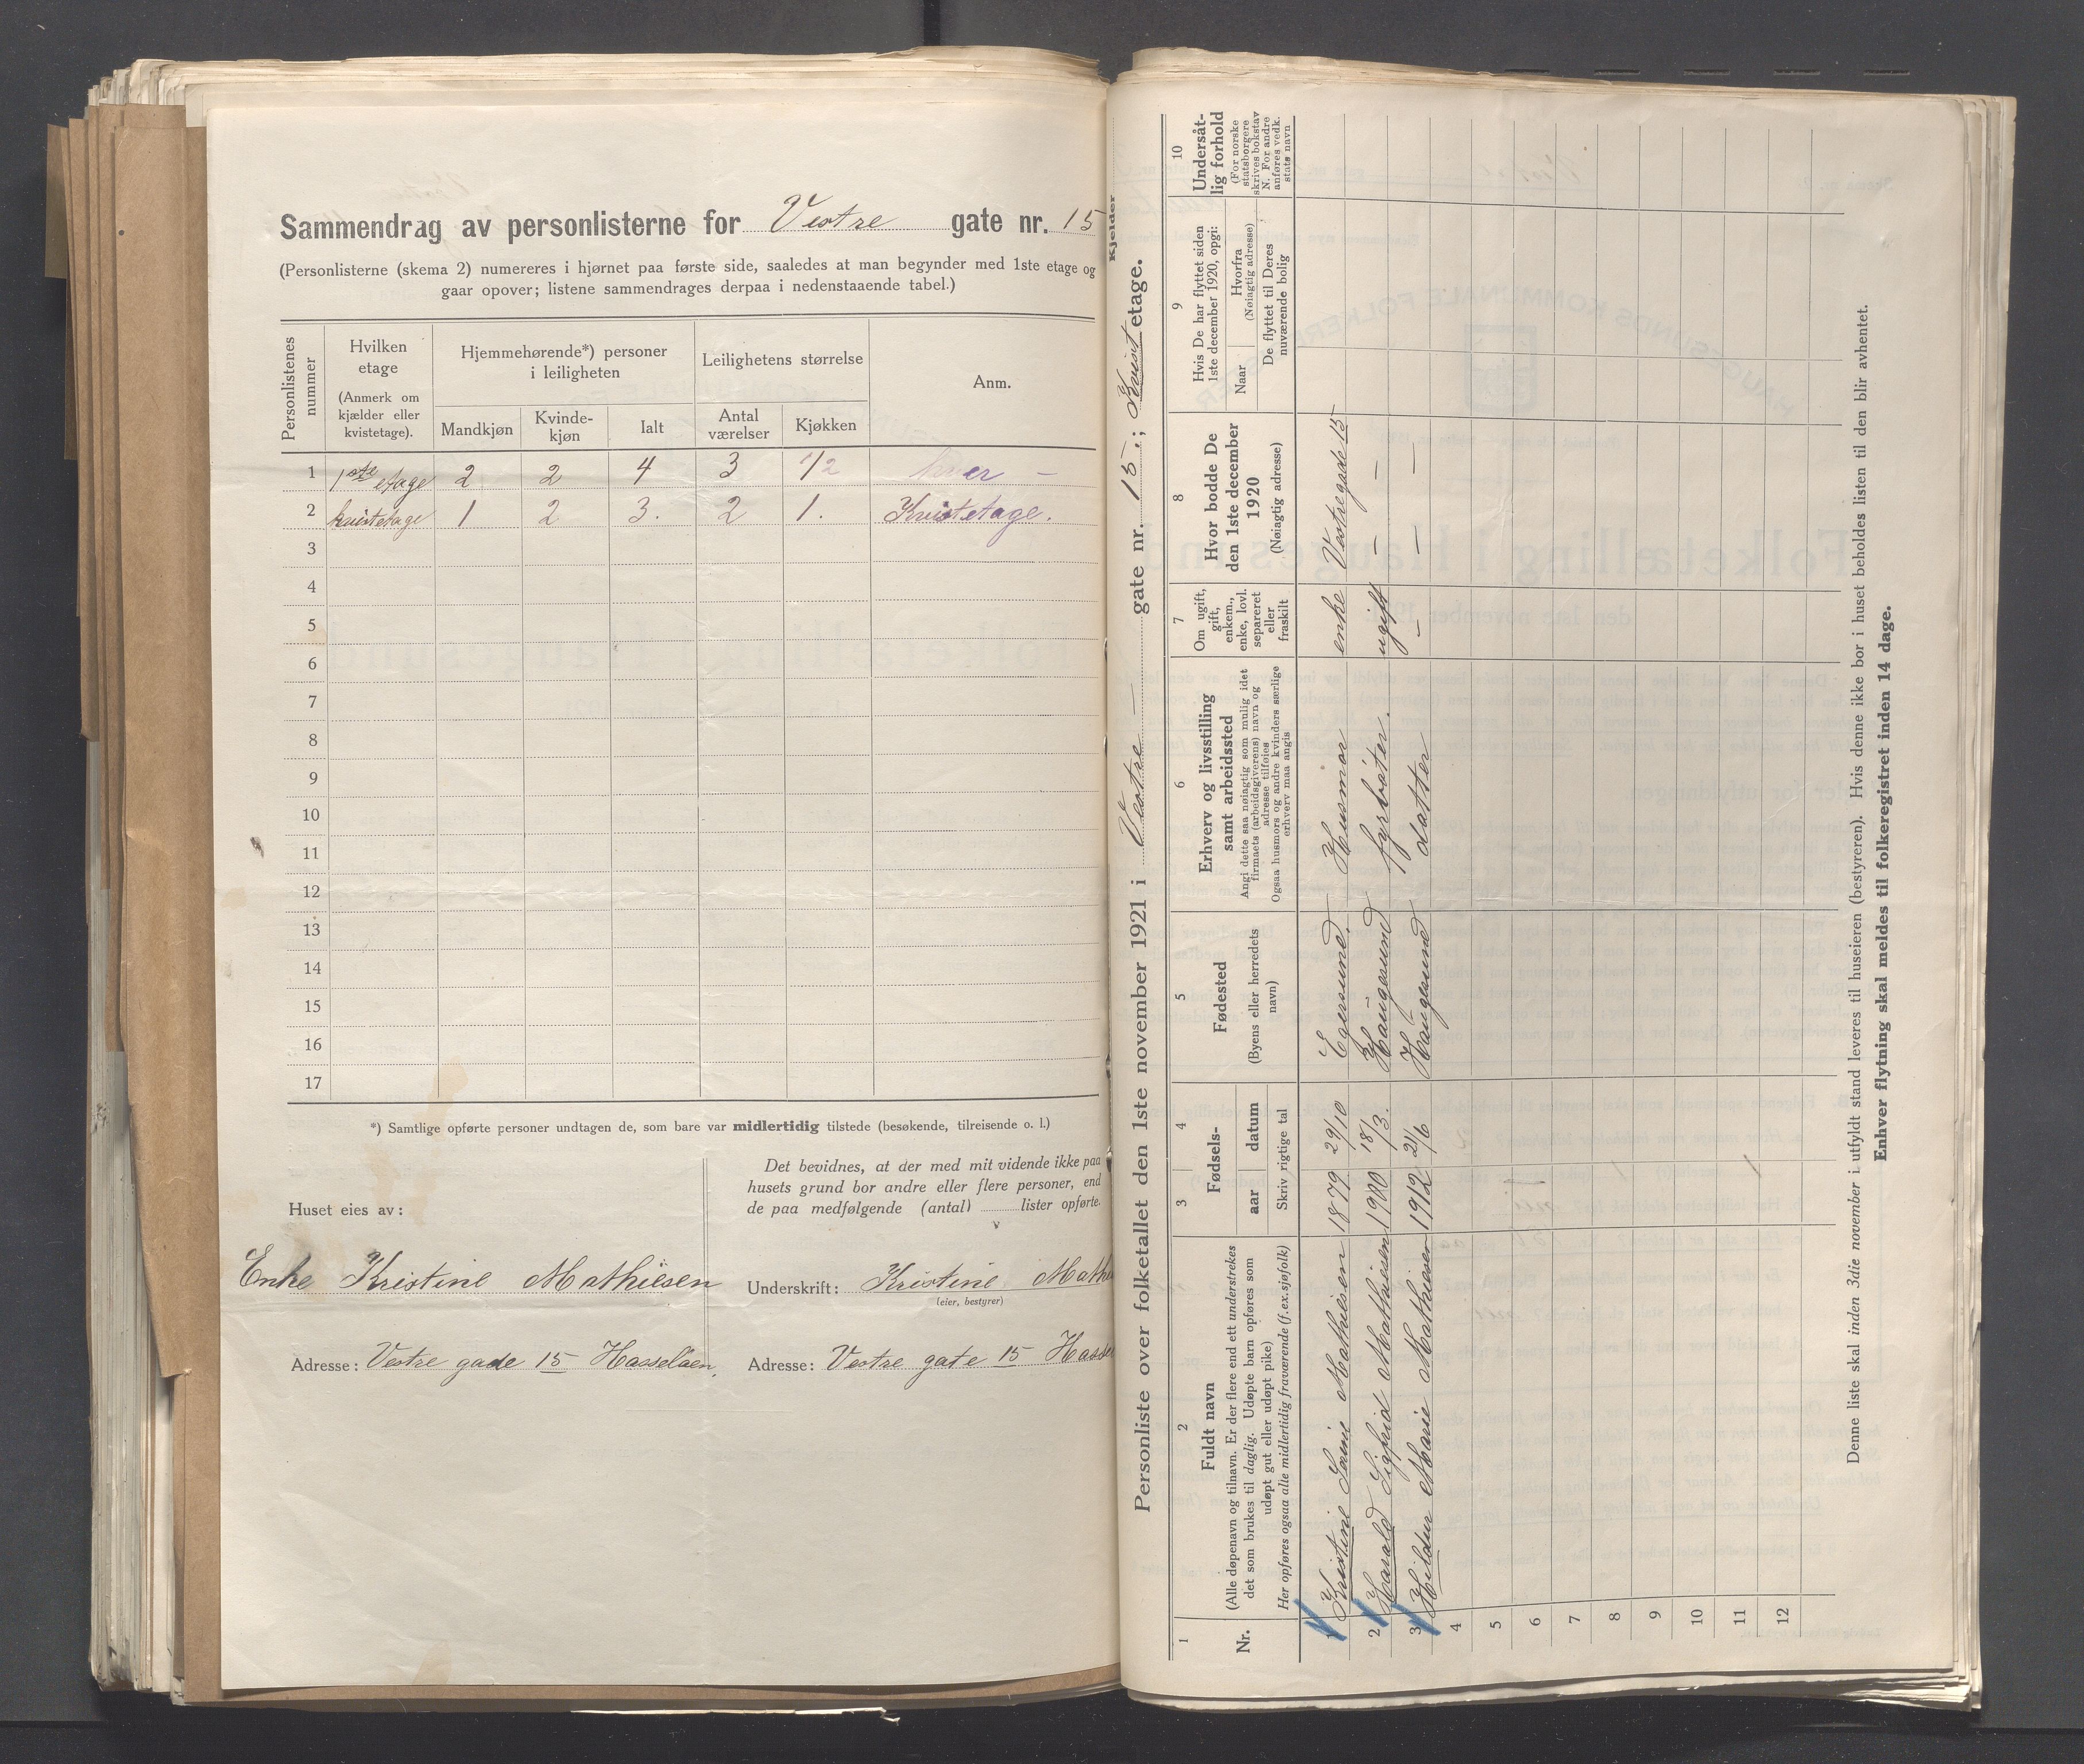 Sammendrag av personlisterne for Vestre gate nr. 15
(Personlisterne (skema 2) numereres i hjørnet paa første side, saaledes at man begynder med 1ste etage og
gaar opover; listene sammendrages derpaa i nedenstaaende tabel.)
Personlistenes nummer
Hvilken etage
(Anmerk om kjælder eller kvistetage).
Hjemmehørende*) personer i leiligheten
Mandkjøn
Kvinde-kjøn
Ialt
Leilighetens størrelse
Antal værelser
Kjøkken
Anm.
1 1ste etage 2 2 4 3 1/2
2 kvistetage 1 2 3. 2 1. Kvistetage.
3
4
5
6
7
8
9
10
11
12
13
14
15
16
17
*) Samtlige opførte personer undtagen de, som bare var midlertidig tilstede (besøkende, tilreisende o. l.)
Huset eies av:
Enke Kristine Mathiesen
Adresse: Vestre gade 15 Hasseløen,
Det bevidnes, at der med mit vidende ikke paa
husets grund bor andre eller flere personer, end
de paa medfølgende (antal) lister opførte.
Underskrift: Kristine Math
(eier, bestyrer)
Adresse: Vestre gate 15 Hasse
Personliste over folketallet den 1ste november 1921 i Vestre — gate nr. 15.; Kvist etage.
Kjelder
1
Nr.
2
Fuldt navn
(Alle døpenavn og tilnavn. Er der flere end ett understrekes
det som brukes til daglig. Udøpte barn opføres som
udøpt gut eller udøpt pike)
Her opføres ogsaa alle midlertidig fraværende (f. ex. sjøfolk)
3 4
Fødsels-
aar datum
Skriv rigtige tal
5
Fødested
(Byens eller herredets
navn)
6
Erhverv og livsstilling
samt arbeidssted
Angi dette saa nøiagtig som mulig idet
firmaets (arbeidsgiverens) navn og
adresse tilføies
Ogsaa husmors og andre kvinders særlige
erhverv maa angis
7
Om ugift,
gift,
enkem.,
enke, lovl.
separeret
eller
fraskilt
8
Hvor bodde De
den 1ste december
1920
(Nøiagtig adresse)
9
Hvis De har flyttet siden
1ste december 1920, opgi:
Naar
Hvorfra
(Nøiagtig adresse)
De flyttet til Deres
nuværende bolig
10
Undersåt-
lig forhold
(For norske
statsborgere
skrives bokstav
N. For andre
anføres vedk.
stats navn
1 Kristine Mathiesen 1879 29/10 Egersund. Husmor enke Vestregade 15
2 Harald Sigfrid Mathiesen 1900 18/3. Haugesund fyrbøter. ugift — —
3 Hildur Marie Mathiesen 1912 21/6 Haugesund datter — — —
4
5
6
7
8
9
10
11
12
Denne liste skal inden 3die november i utfyldt stand leveres til huseieren (bestyreren). Hvis denne ikke bor i huset beholdes listen til den blir avhentet.
Enhver flytning skal meldes til folkeregistret inden 14 dage.